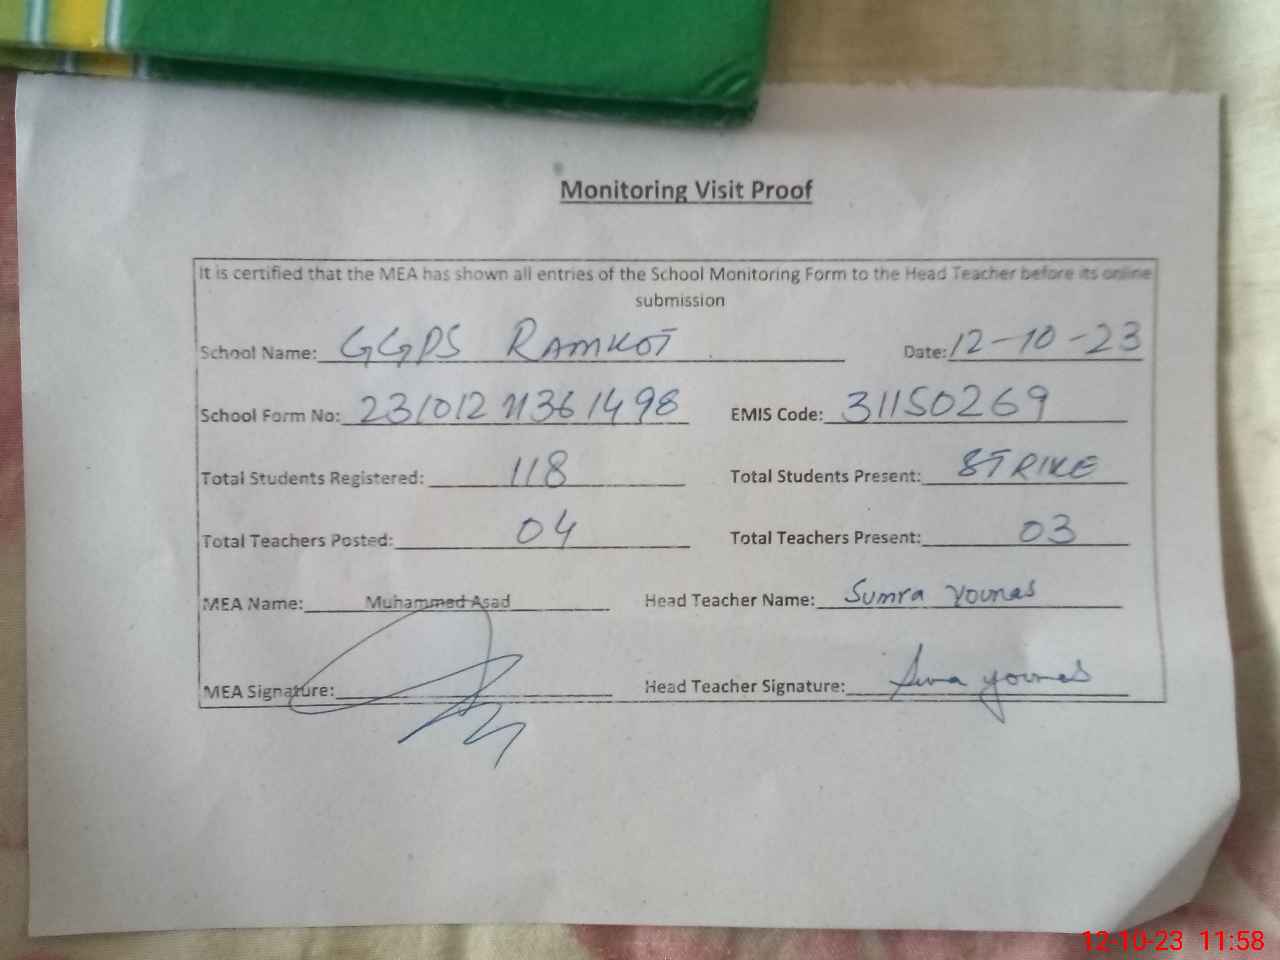 Monitoring Visit Proof
It is certified that the MEA has shown all entries of the School Monitoring Form to the Head Teacher before its online
submission
School Name: GGPS RAMKOT Date: 12-10-23
School Form No: 2310121361498 EMIS Code: 31150269
Total Students Registered: 118 Total Students Present: STRIKE
Total Teachers Posted: 04 Total Teachers Present: 03
MEA Name: Muhammed Asad Head Teacher Name: Sumra Younas
MEA Signature: Head Teacher Signature: younas
12-10-23 11:58